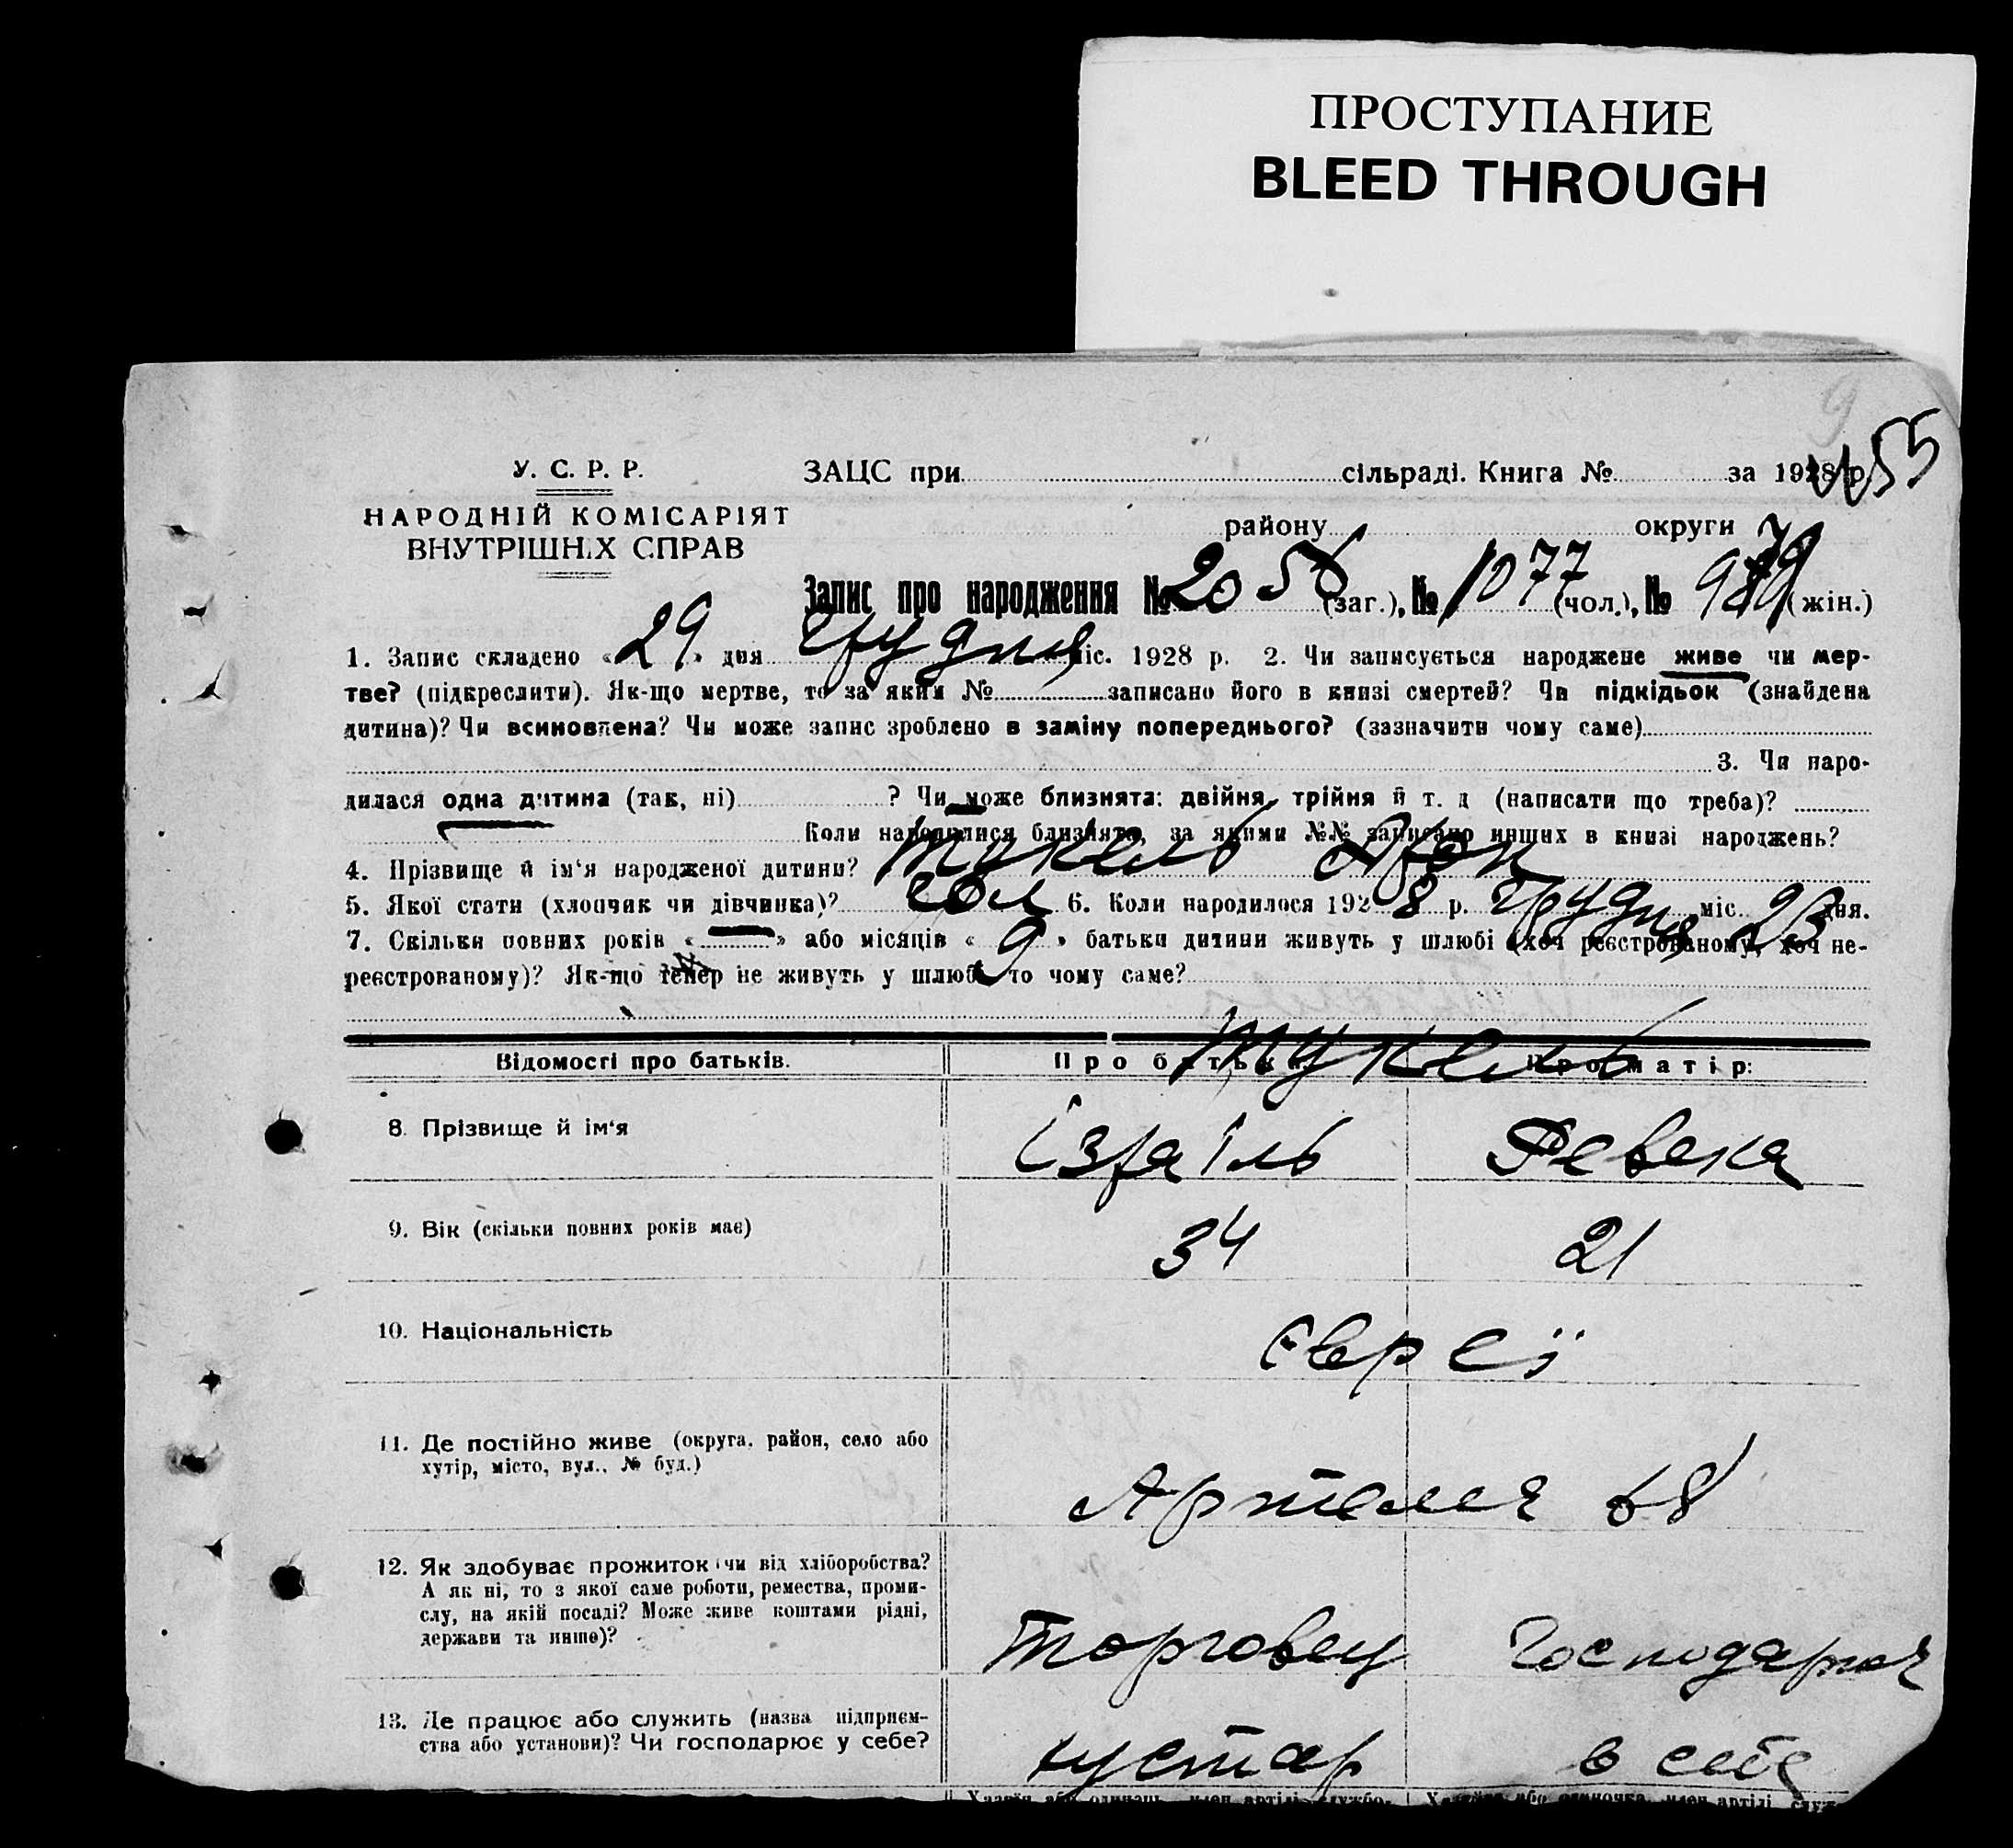 ПРОСТУПАНИЕ
BLEED THROUGH
9
У. С. Р. Р.
НАРОДНІЙ КОМІСАРІЯТ
ВНУТРІШНІХ СПРАВ
ЗАЦС при сільраді. Книга № за 1928 р
району округи
Запис про народження № 2056 (заг.), № 1077 (чол.), № 979 (жін.)
1. Запис складено «29» дня грудня міс. 1928 р. 2. Чи записується народжене живе чи мер-
тве? (підкреслити). Як-що мертве, то за яким № записано його в книзі смертей? Чи підкідьок (знайдена
дитина)? Чи всиновлена? Чи може запис зроблено в заміну попереднього? (зазначити чому саме)
3. Чи наро-
дилася одна дитина (так, ні) ? Чи може близнята: двійня, трійня й т. д (написати що треба)?
Коли народилися близнята, за якими №№ записано инших в книзі народжень?
4. Прізвище й ім‘я народженої дитини?
5. Якої стати (хлопчик чи дівчинка)? чол 6. Коли народилося 1928 р. грудня міс. 23 дня.
7. Скільки повних років « — » або місяців « 9 » батьки дитини живуть у шлюбі (хоч реєстрованому, хоч не-
реєстрованому)? Як-що тепер не живуть у шлюбі то чому саме?
Відомості про батьків. Про батька: Про матір:
8. Прізвище й ім‘я Ізраїль Ревека
9. Вік (скільки повних років має) 34 21
10. Національність Євреї
11. Де постійно живе (округа, район, село або
хутір, місто, вул., № буд.)
Артема 68
12. Як здобуває прожиток чи від хліборобства?
А як ні, то з якої саме роботи, ремества, проми-
слу, на якій посаді? Може живе коштами рідні,
держави та инше)?
Торговец Господарка
13. Де працює або служить (назва підприєм-
ства або установи)? Чи господарює у себе?
кустар в себе
Хазяїн або одинець, член артілі, службо- Хазяйка або одиночка, член артілі, служ